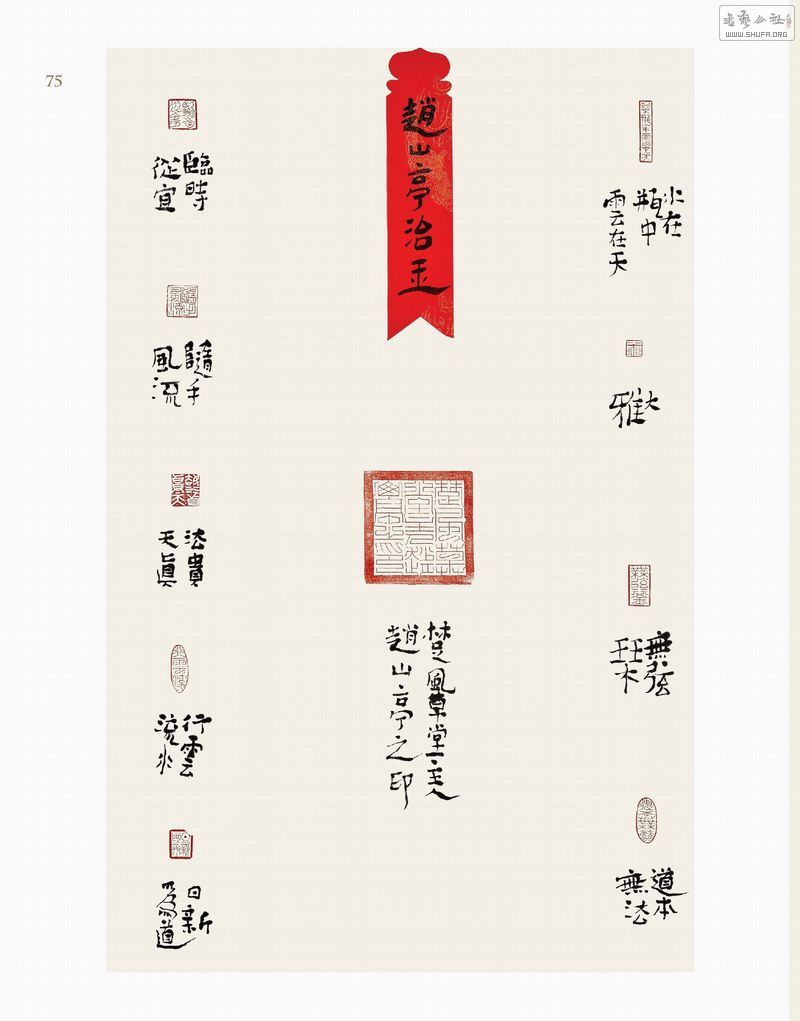 書藝公社
WWW.SHUFA.ORG
75
趙山亭治玉
水在
瓶中
雲在天
大
雅
無弦
琴
道本
無法
楚風草堂主人
趙山亭之印
臨時
從宜
隨手
風流
法貴
天眞
行雲
流水
日新
爲道